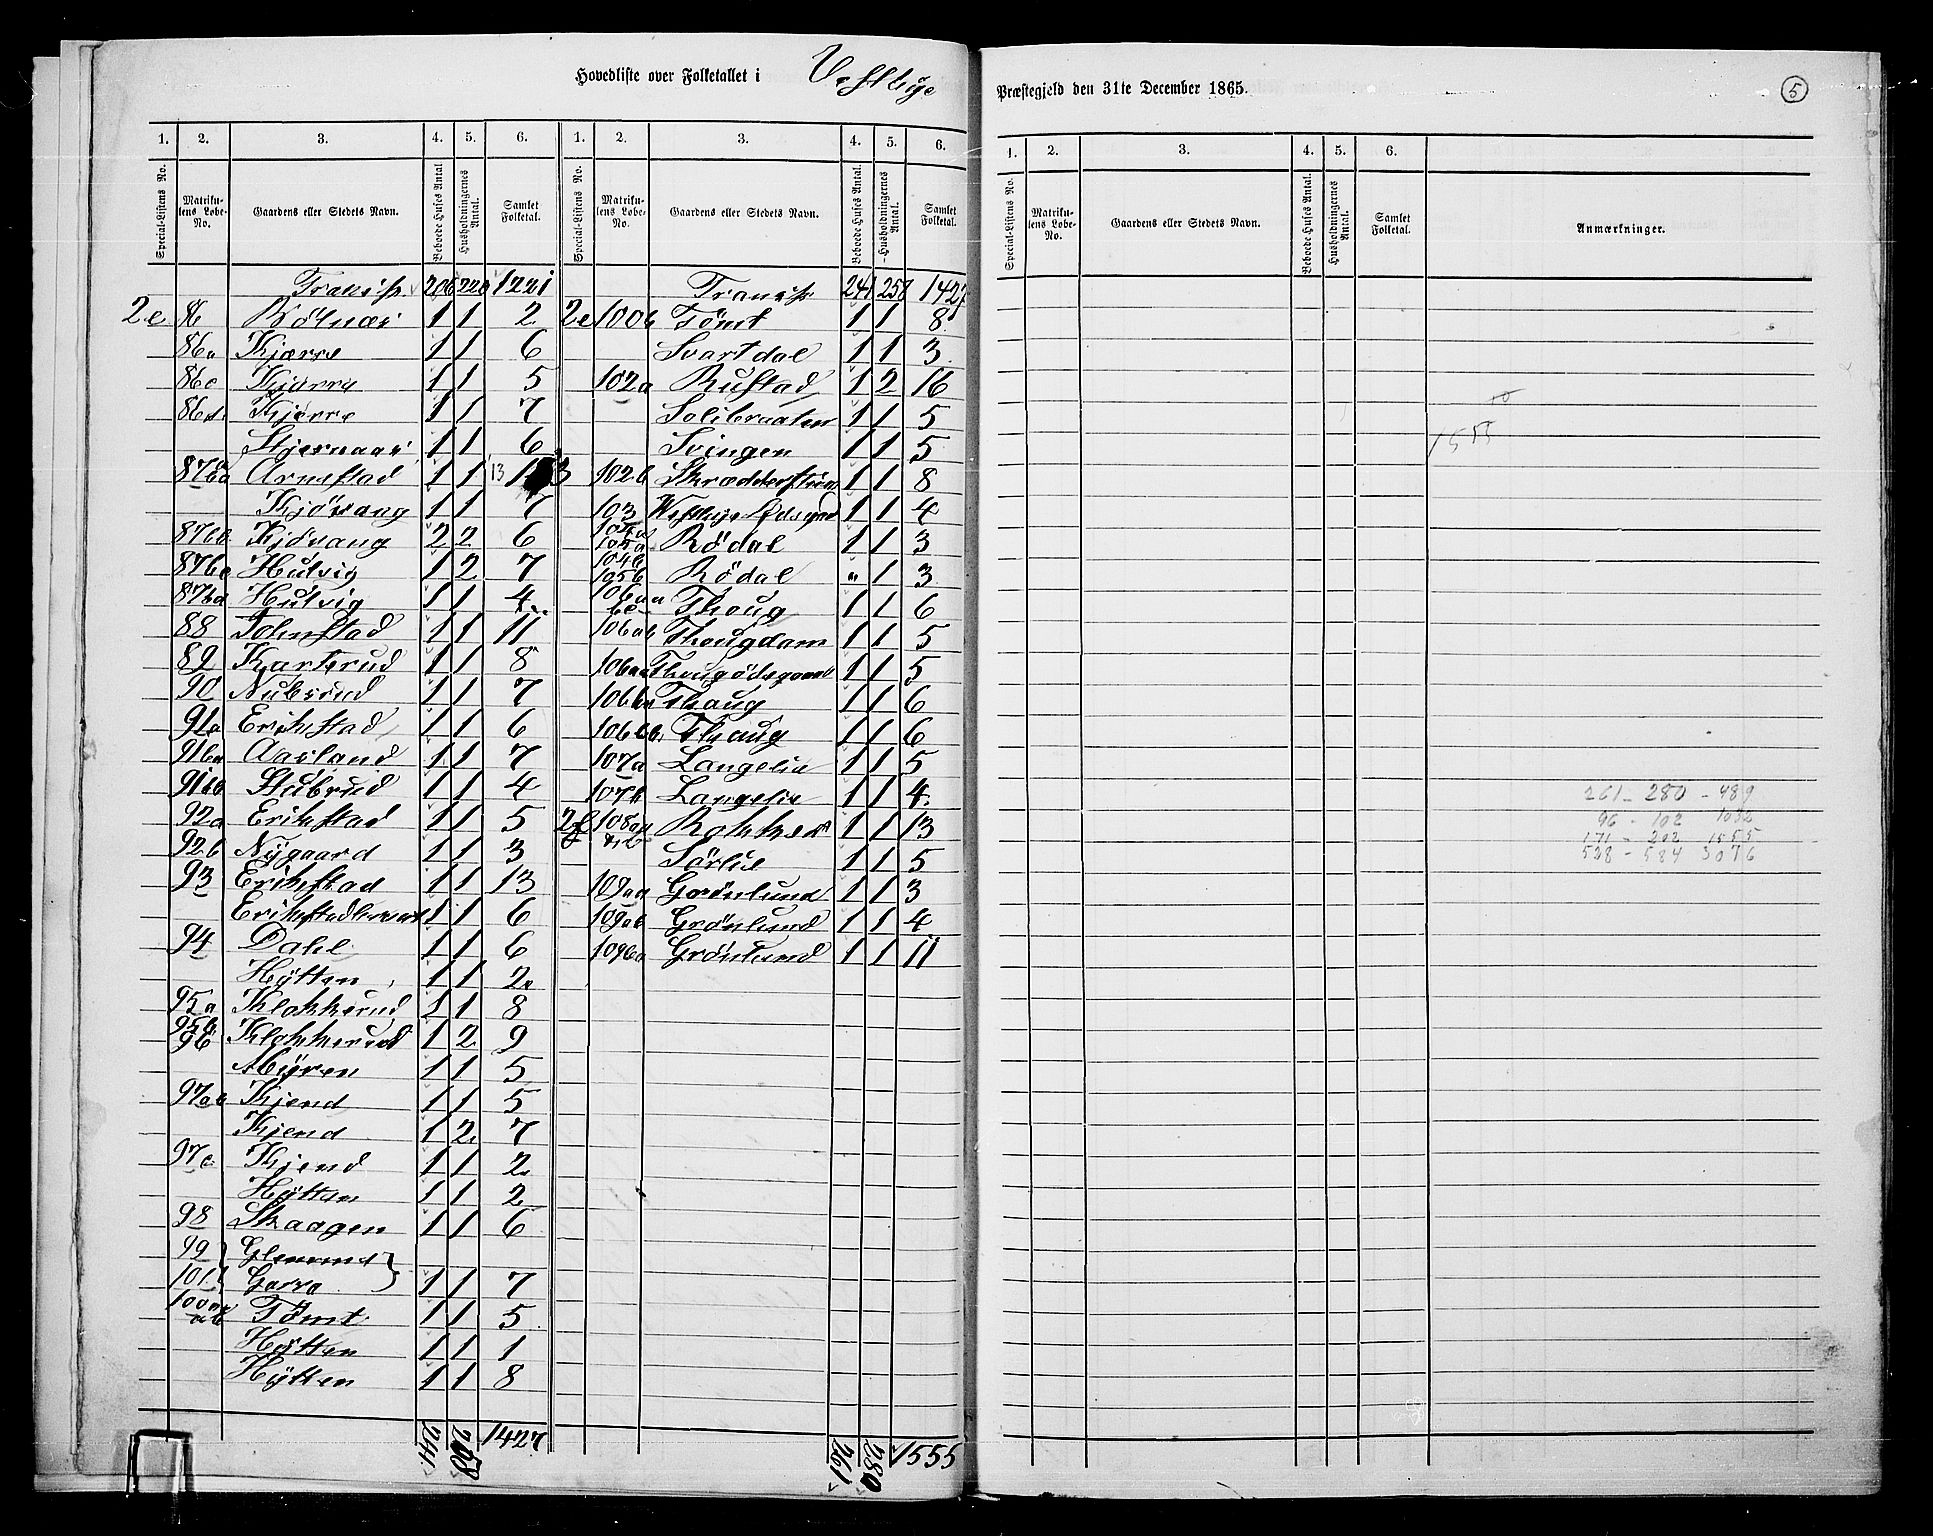 Hovedliste over Folketallet i Vestbye
Præstegjeld den 31te December 1865.
5
1. 2. 3. 4. 5. 6. 1. 2. 3. 4. 5. 6.
Special-Listens No. Matrikulens Løbe-No. Gaardens eller Stedets Navn. Beboede Huses Antal Husholdningernes Antal. Samlet Folketal.
Special-Listens No. Matrikulens Løbe-No. Gaardens eller Stedets Navn. Beboede Huses Antal. Husholdningernes Antal. Samlet Folketal.
Transp. 206 220 1221
2e 86 1 1 2
86a Kjærre 1 1 6
86c Kjærre 1 1 5
86d Kjærre 1 1 7
Stjernaas 1 1 6
87ba Arnestad 1 1 13
Kjøvang 1 1 7
87bb Kjøvang 2 2 6
87bc Hulvig 1 2 7
87bd Hulvig 1 1 4
88 Tolnstad 1 1 11
89 Karterud 1 1 8
90 Nubrud 1 1 7
91a Erikstad 1 1 6
91ba Aasland 1 1 7
91bb Stubrud 1 1 4
92a Erikstad 1 1 5
92b Nygaard 1 1 3
93 Erikstad 1 1 13
Erikstadbraat 1 1 6
94 Dahl 1 1 6
Hytten 1 1 2
95a Klokkerud 1 1 8
95b 96 Klokkerud 1 2 9
Myren 1 1 5
97ab Kjend 1 1 5
Kjend 1 2 7
97c Kjend 1 1 2
Hytten 1 1 2
98 Skaagen 1 1 6
99
101 Garra 1 1 7
100aa ab Tømt 1 1 5
Hytten 1 1 1
Hytten 1 1 8
241 258 1427
Transp. 241 258 1427
2e 100b Tømt 1 1 8
Svartdal 1 1 3
102a Rustad 1 2 16
Solibraaten 1 1 5
Svingen 1 1 5
102b 1 1 8
103 Westbye Ødegrd 1 1 4
104a 105a Rødal 1 1 3
104b 105b Rødal " 1 3
106aa bc Thoug 1 1 6
106ab Thougdam 1 1 5
Thougødegaard 1 1 5
106ba Thaug 1 1 6
106bb Thaug 1 1 6
107a Langelie 1 1 5
107b Langelie 1 1 4
2f 108a 1 1 13
Sørlie 1 1 5
109aa Grønlund 1 1 3
109ab Grønlund 1 1 4
109ba Grønlund 1 1 11
261 280 1555
1. 2. 3. 4. 5. 6.
Special-Listens No. Matrikulens Løbe-No. Gaardens eller Stedets Navn. Beboede Huses Antal. Husholdningernes Antal. Samlet Folketal. Anmærkninger.
1555
261 - 280 - 489
96 - 102 1032
171 - 202 1555
528 - 584 3076